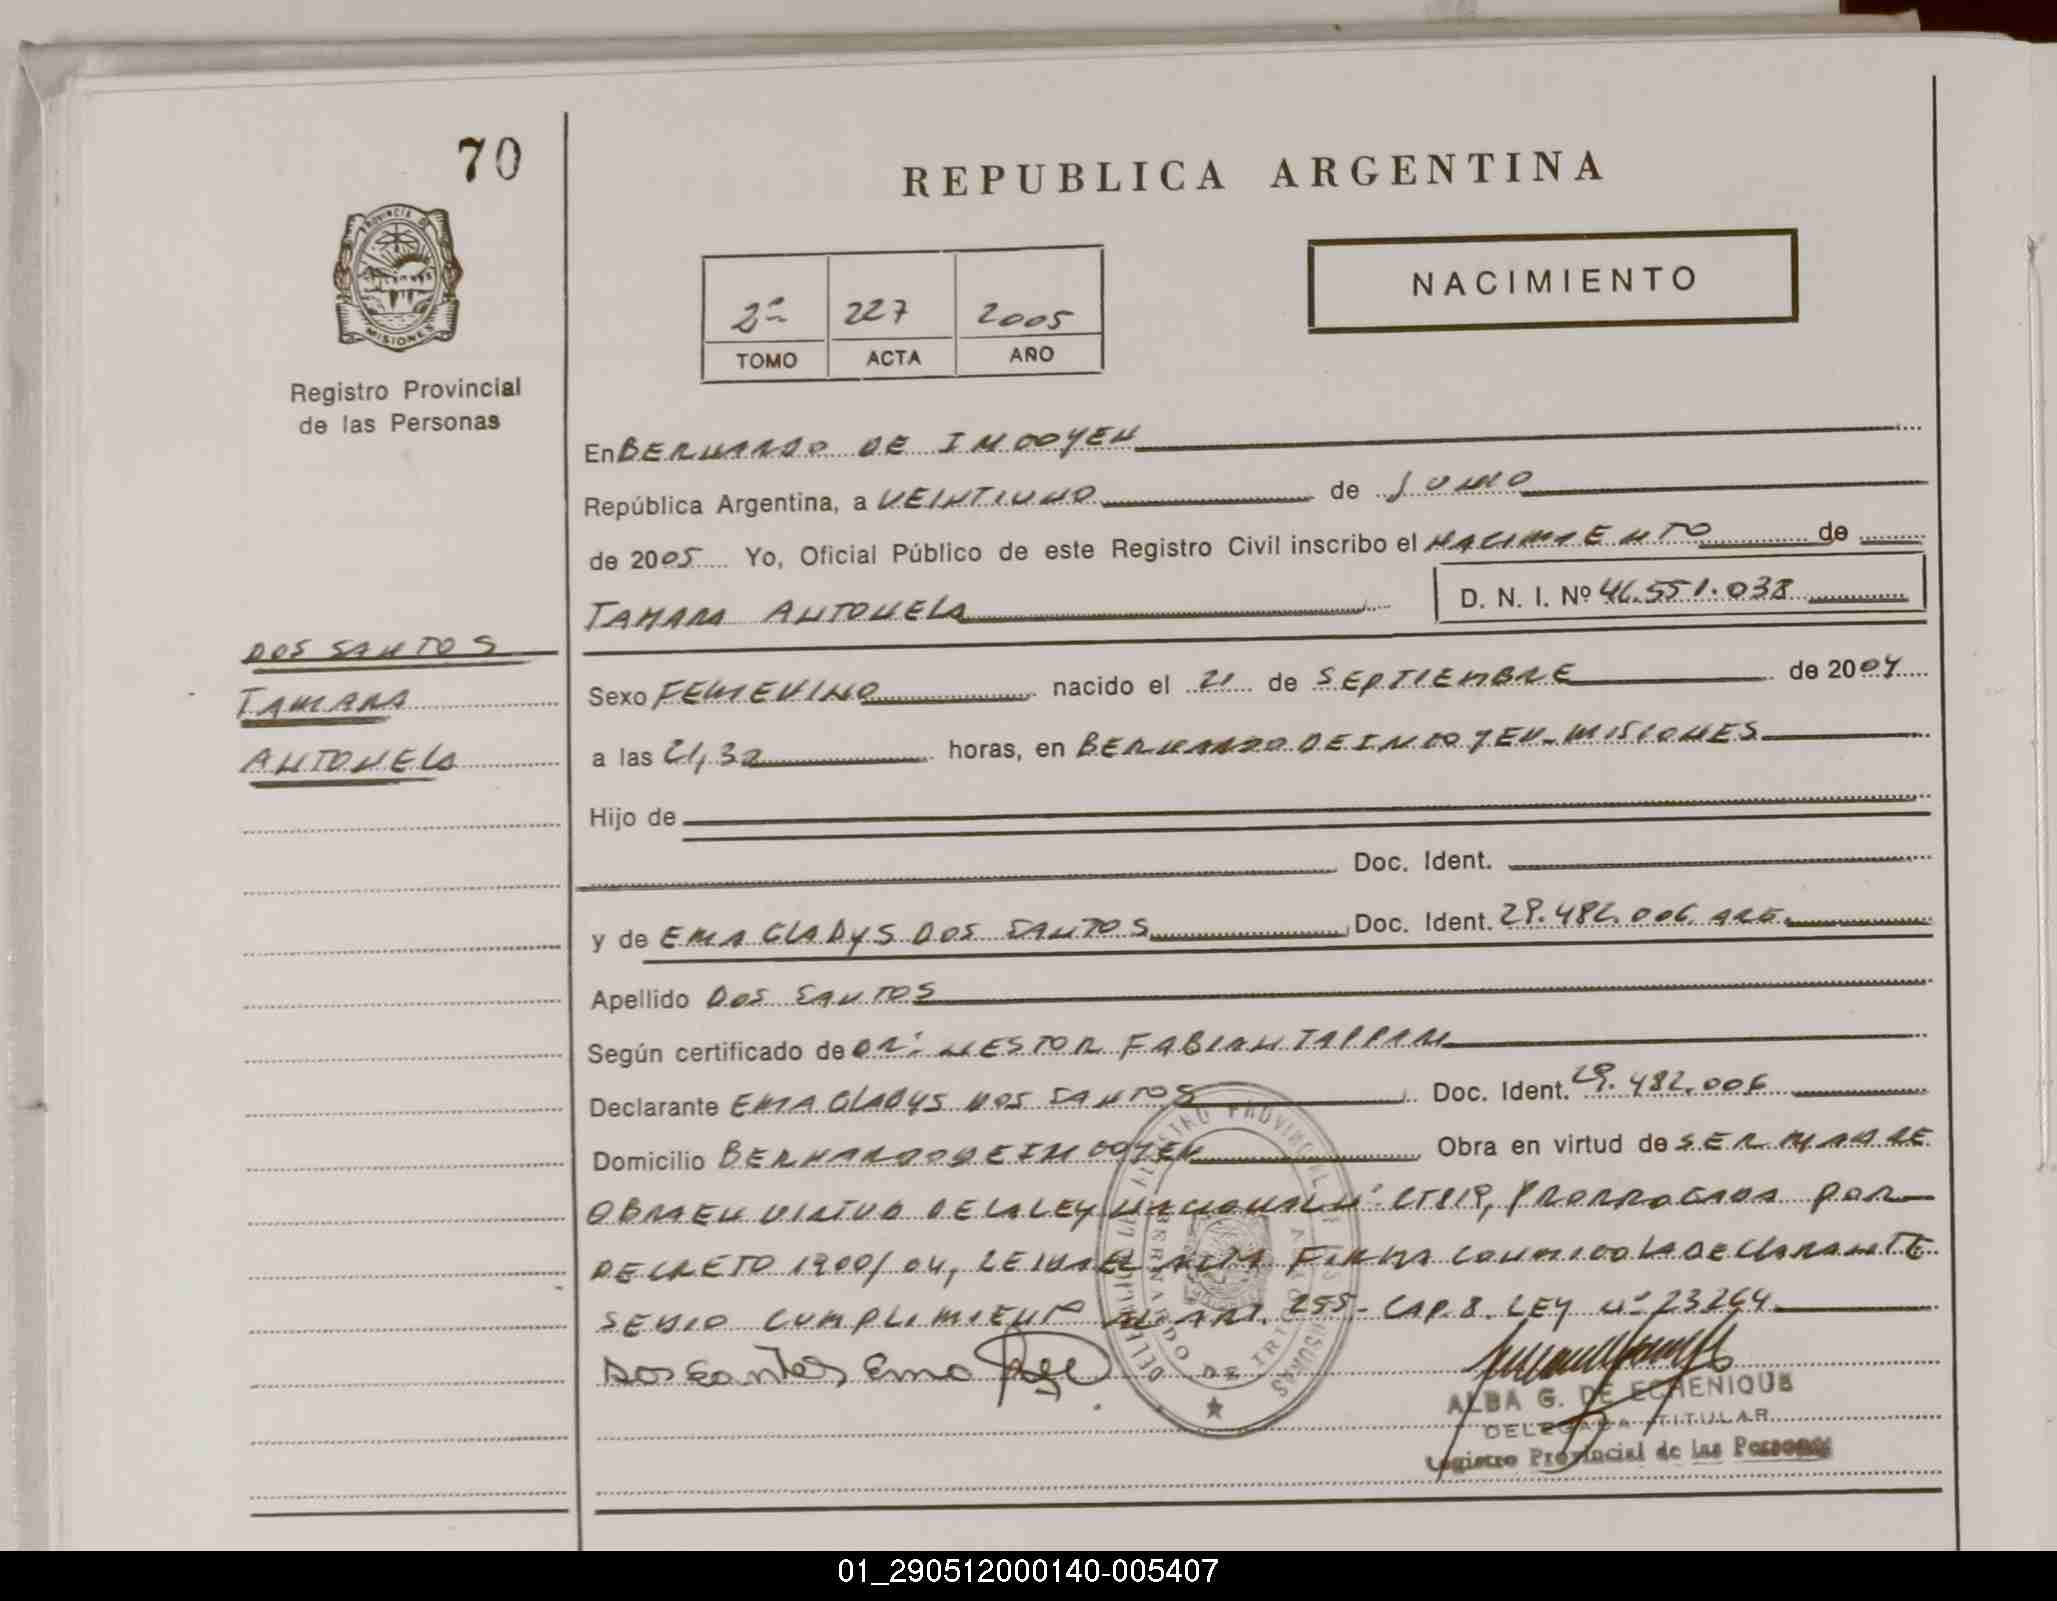 70
REPUBLICA ARGENTINA
PROVINCIA DE
MISIONES
Registro Provincial
de las Personas
NACIMIENTO
2º 227 2005
TOMO ACTA AÑO
En BERNARDO DE IRIGOYEN
República Argentina, a VEINTIUNO de JUNIO
de 2005 Yo, Oficial Público de este Registro Civil inscribo el NACIMIENTO de
TAMARA ANTONELA D. N. I. Nº 46.551.038
DOS SANTOS
TAMARA
ANTONELA
Sexo FEMENINO nacido el 21 de SEPTIEMBRE de 2004
a las 21,32 horas, en BERNARDO DE IRIGOYEN - MISIONES
Hijo de
Doc. Ident.
y de EMA GLADYS DOS SANTOS Doc. Ident. 29.482.006 ARG.
Apellido DOS SANTOS
Según certificado de DR. NESTOR FABIAN
Declarante EMA GLADYS DOS SANTOS Doc. Ident. 29.482.006
Domicilio BERNARDO DE IRIGOYEN Obra en virtud de SER MADRE
OBRA EN VIRTUD DE LA LEY NACIONAL Nº 25819, PRORROGADA POR
DECRETO 1900/04, LEIDA EL ACTA FIRMA CONMIGO LA DECLARANTE
SE DIO CUMPLIMIENTO AL ART. 255 - CAP. 8. LEY Nº 23264
Dos Santos Ema
BERNARDO DE IRIGOYEN
ALBA G. DE ECHENIQUE
DELEGADA TITULAR
Registro Provincial de las Personas
01_290512000140-005407